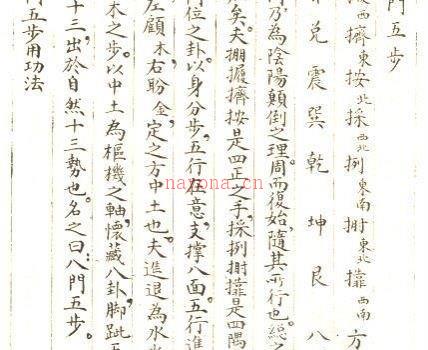 門五步
西擠東按北採西北挒東南 東北 西南方
兌震巽乾坤艮八
乃為陰陽顛倒之理周而復始,隨其所行也。總之
矣。夫掤 擠按是四正之手,採挒 是四隅
位之卦,以身分步,五行在意,支撐八面,五行進
左顧木,右盼金,定之方中土也。夫進退為水火
木之步。以中土為樞機之軸,懷藏八卦,脚跐五
十三,出於自然十三勢也。名之曰:八門五步。
門五步用功法
nayona.cn